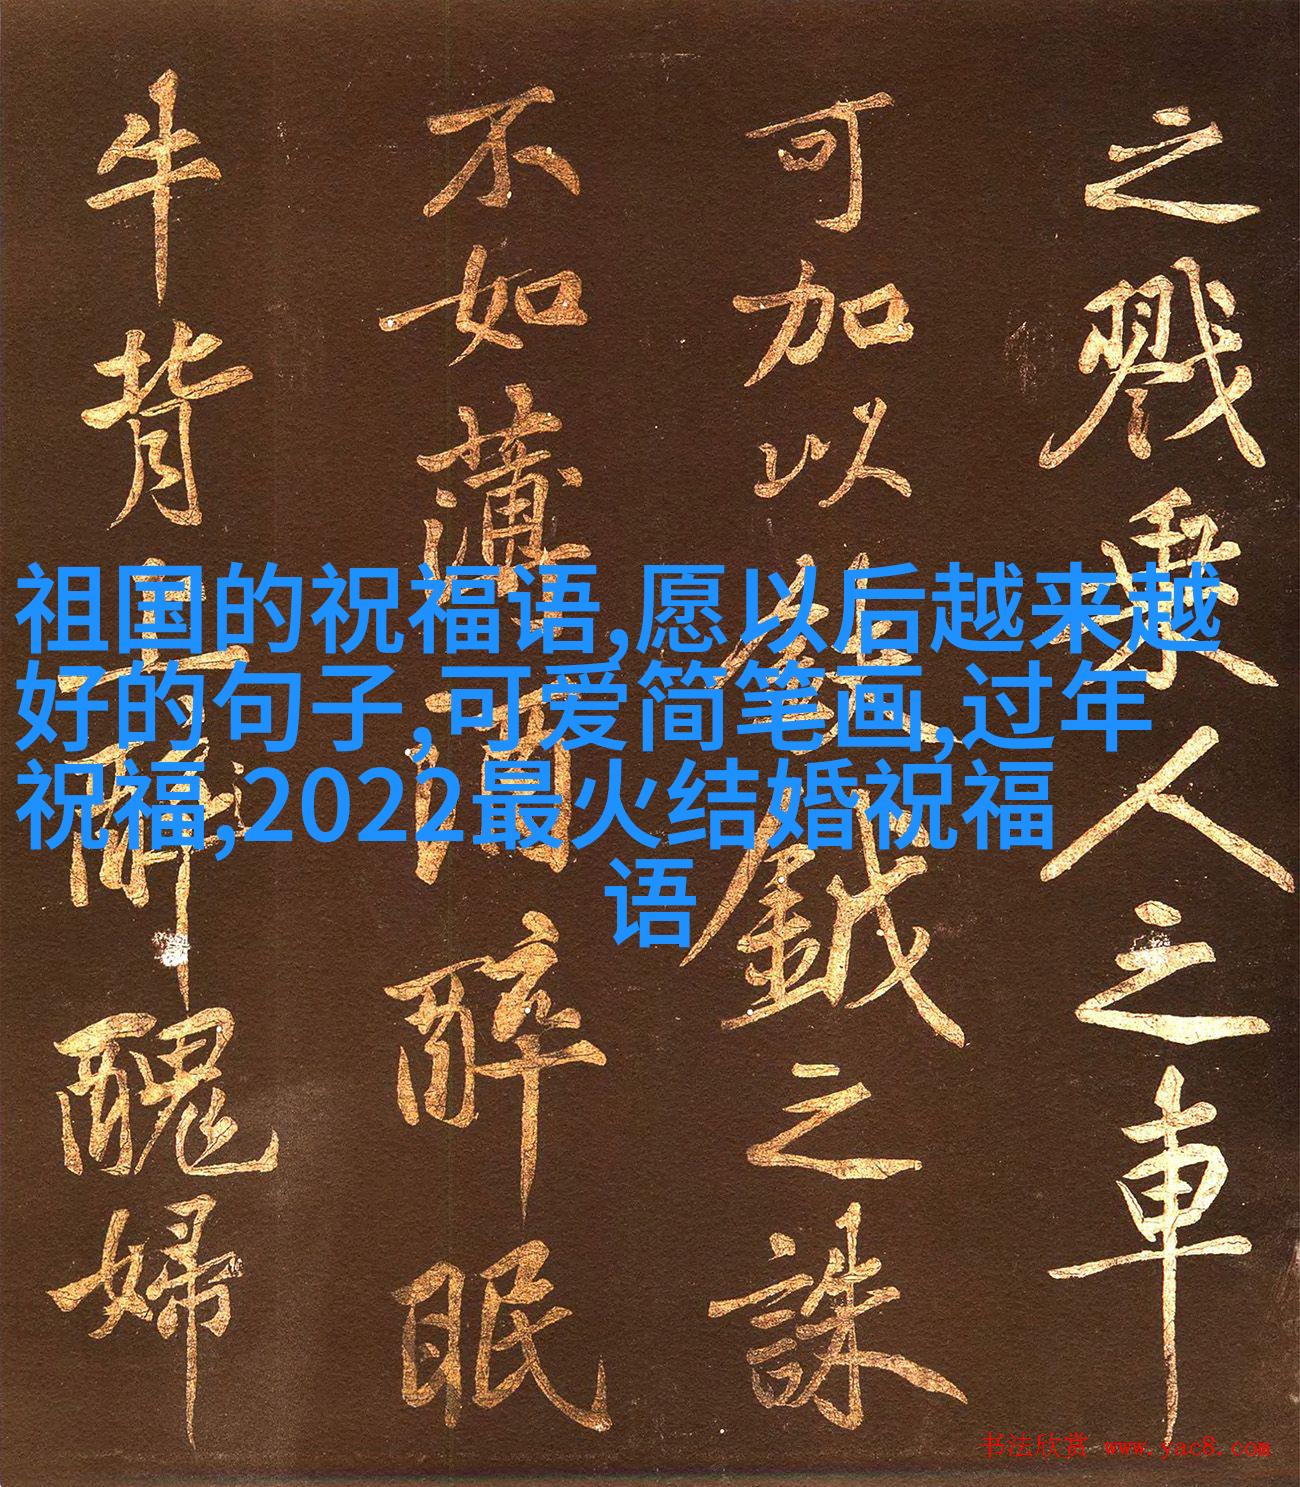 之戮乘人之車
可加以鉞之誅
不如薄酒醉眠
牛背上醜婦
祖国的祝福语,愿以后越来越
好的句子,可爱简笔画,过年
祝福,2022最火结婚祝福
语
书法欣赏 www.yac8.com